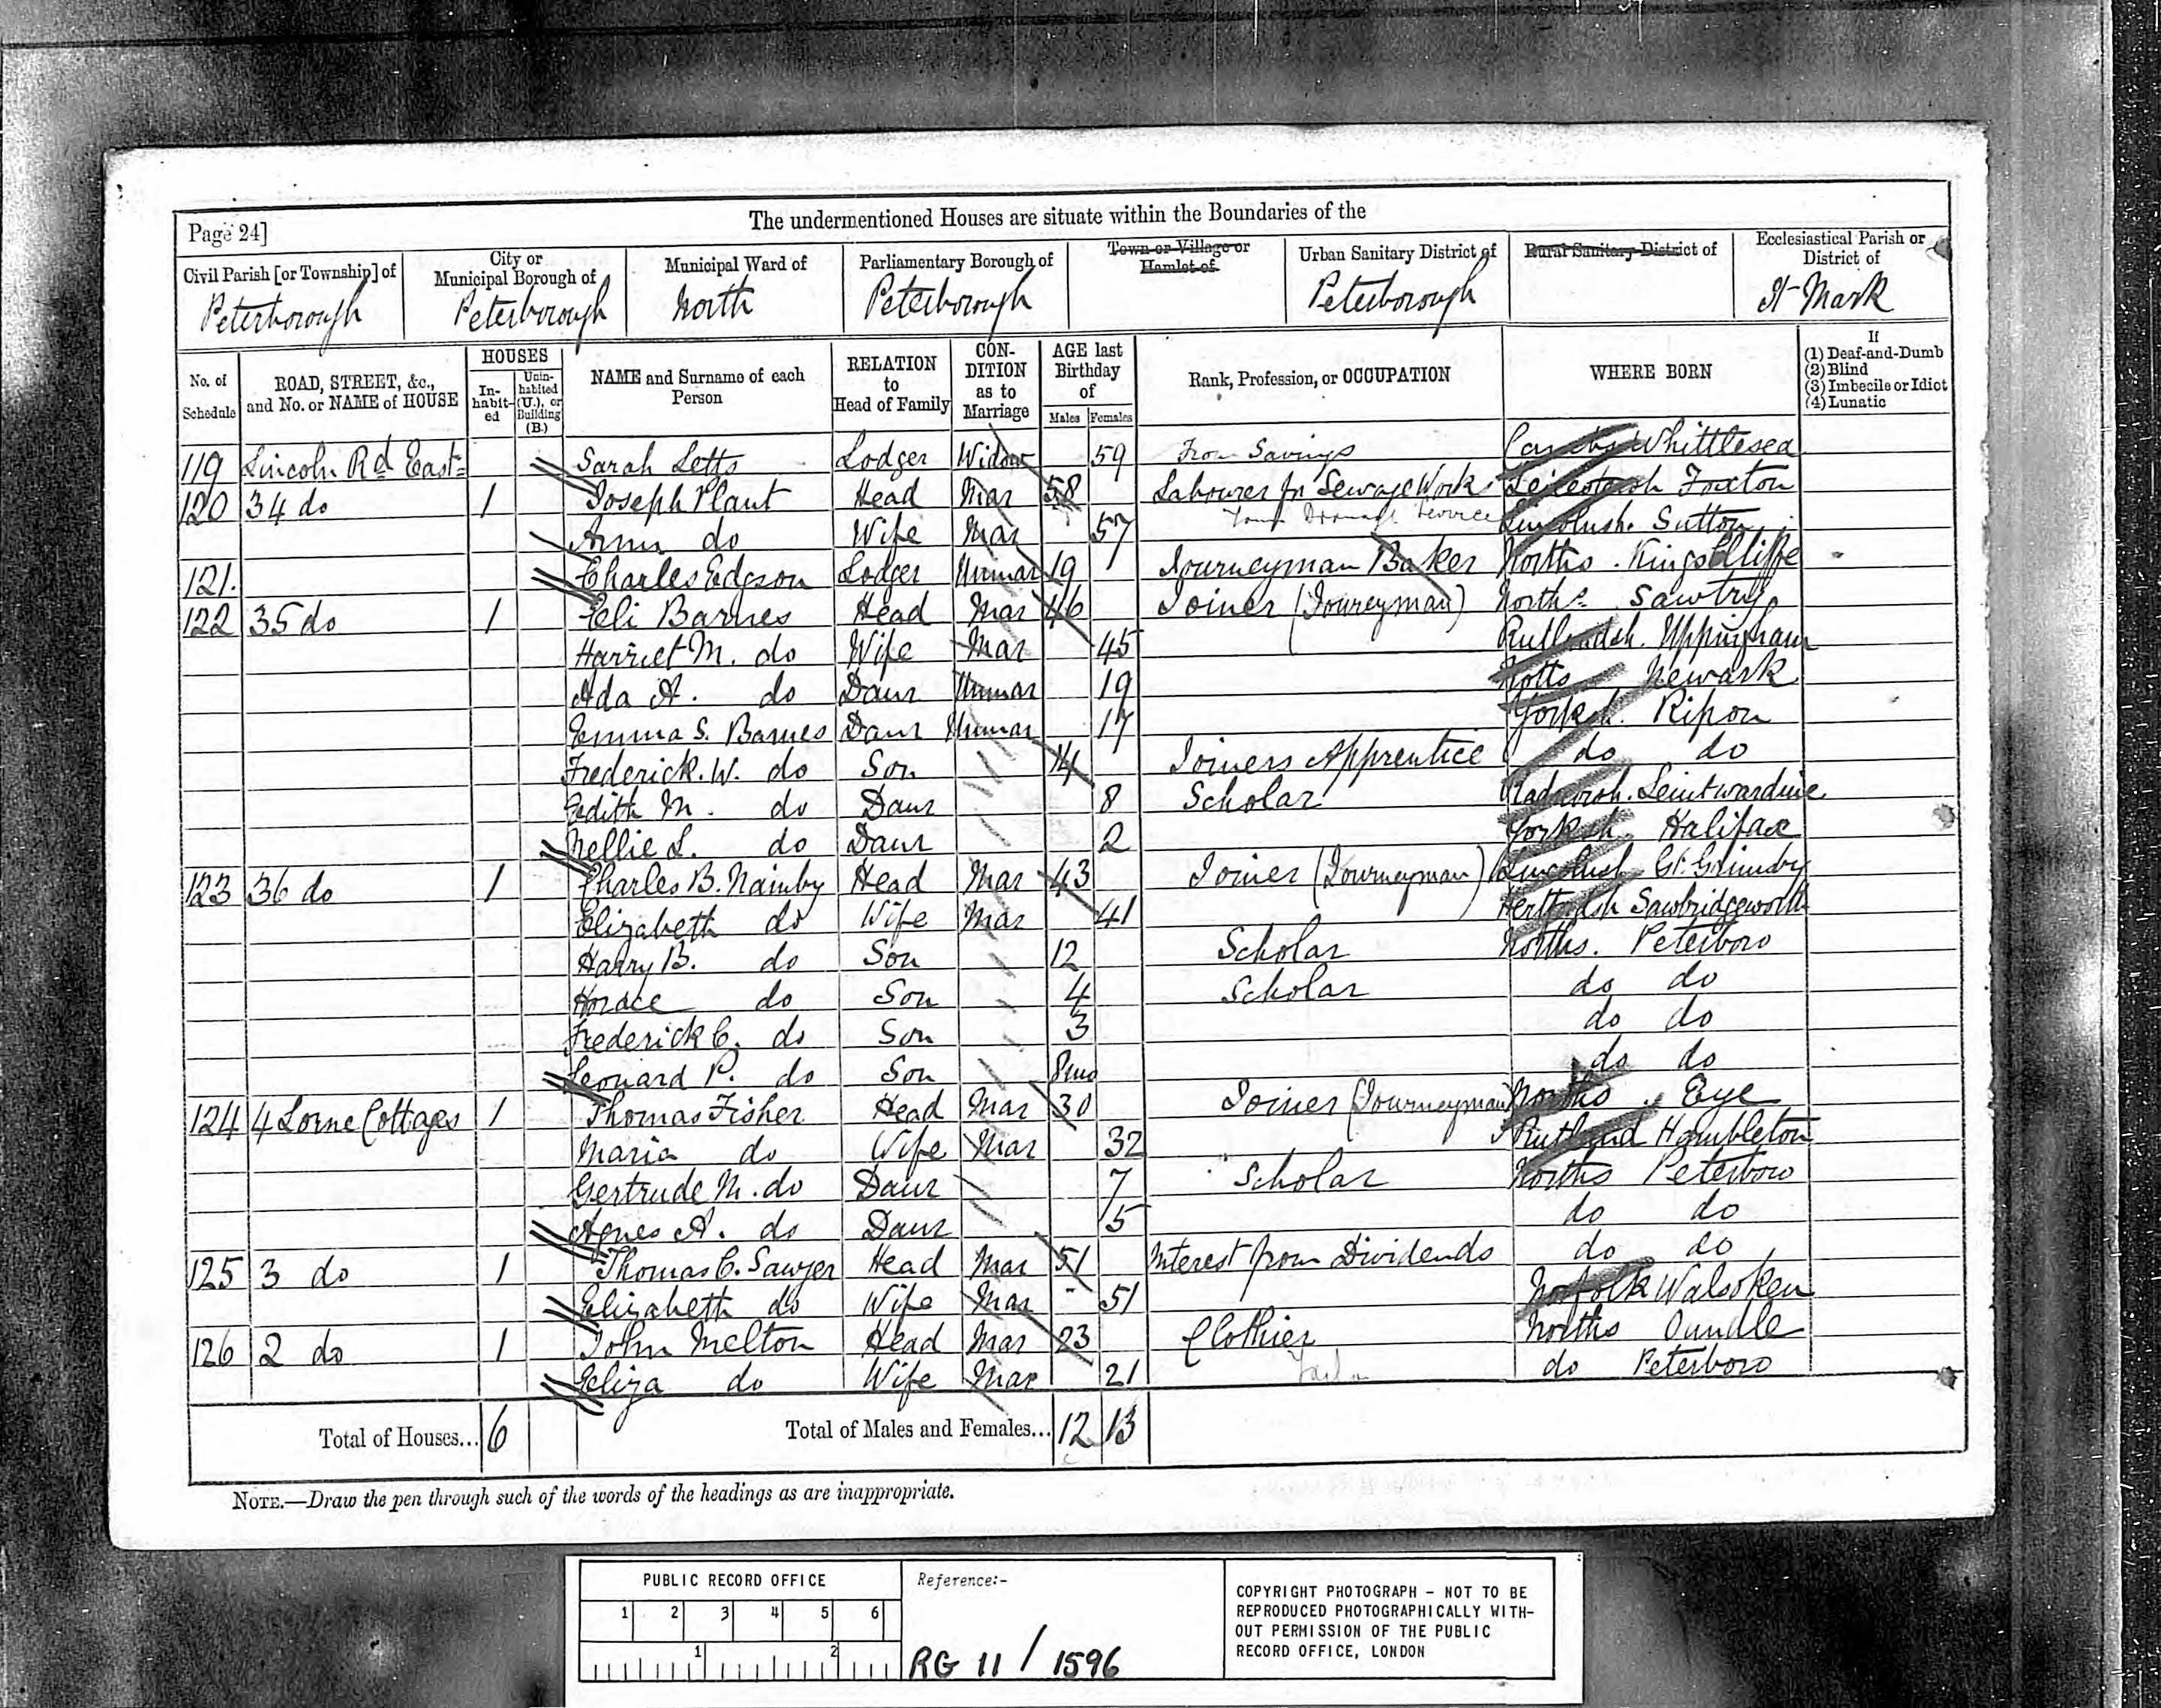 Page 24]
The undermentioned Houses are situate within the Boundaries of the
Civil Parish [or Township] of
Peterborough
City or Municipal Borough of
Peterborough
Municipal Ward of
North
Parliamentary Borough of
Peterborough
Town or Village or Hamlet of
Urban Sanitary District of
Peterborough
Rural Sanitary District of
Ecclesiastical Parish or District of
St Mark
No. of Schedule
ROAD, STREET, &c., and No. or NAME of HOUSE
HOUSES
In-habit-ed
Unin-habited (U.), or Building (B.)
NAME and Surname of each Person
RELATION to Head of Family
CON-DITION as to Marriage
AGE last Birthday of
Males Females
Rank, Profession, or OCCUPATION
WHERE BORN
If
(1) Deaf-and-Dumb
(2) Blind
(3) Imbecile or Idiot
(4) Lunatic
119 Lincoln Rd East Sarah Letts Lodger Widow 59 From Savings Cambs Whittlesea
120 34 do 1 Joseph Plant Head Mar 58 Labourer on Sewage Work Leicestersh Foxton
Town Drainage Service
Ann do Wife Mar 57 Lincolnsh. Sutton
121. Charles Edgson Lodger Unmar 19 Journeyman Baker Norths. Kings Cliffe
122 35 do 1 Eli Barnes Head Mar 46 Joiner (Joureyman) Norths Sawtry
Harriet M. do Wife Mar 45 Rutlandsh. Uppingham
Ada A. do Daur Unmar 19 Notts Newark
Emma S. Barnes Daur Unmar 17 Yorksh. Ripon
Frederick. W. do Son 14 Joiners Apprentice do do
Edith M. do Daur 8 Scholar Radnorsh. Leintwardine
Nellie L. do Daur 2 Yorksh. Halifax
123 36 do 1 Charles B. Nainby Head Mar 43 Joiner (Journeyman) Lincolnsh Gt. Grimsby
Elizabeth do Wife Mar 41 Hertfordsh Sawbridgeworth
Harry B. do Son 12 Scholar Norths. Peterboro
Horace do Son 4 Scholar do do
Frederick C. do Son 3 do do
Leonard P. do Son 8mo do do
124 4 Lorne Cottages 1 Thomas Fisher Head Mar 30 Joiner (Journeyman) Norths. Eye
Maria do Wife Mar 32 Rutland Hambleton
Gertrude M. do Daur 7 Scholar Norths Peterboro
Agnes A. do Daur 5 do do
125 3 do 1 Thomas C. Sawyer Head Mar 51 Interest from Dividends do do
Elizabeth do Wife Mar 51 Norfolk Walsoken
126 2 do 1 John Melton Head Mar 23 Clothier Norths Oundle
Eliza do Wife Mar 21 do Peterboro
Total of Houses... 6 Total of Males and Females... 12 13
NOTE.—Draw the pen through such of the words of the headings as are inappropriate.
PUBLIC RECORD OFFICE
1 2 3 4 5 6
1 2
Reference:-
RG 11 / 1596
COPYRIGHT PHOTOGRAPH - NOT TO BE
REPRODUCED PHOTOGRAPHICALLY WITH-
OUT PERMISSION OF THE PUBLIC
RECORD OFFICE, LONDON